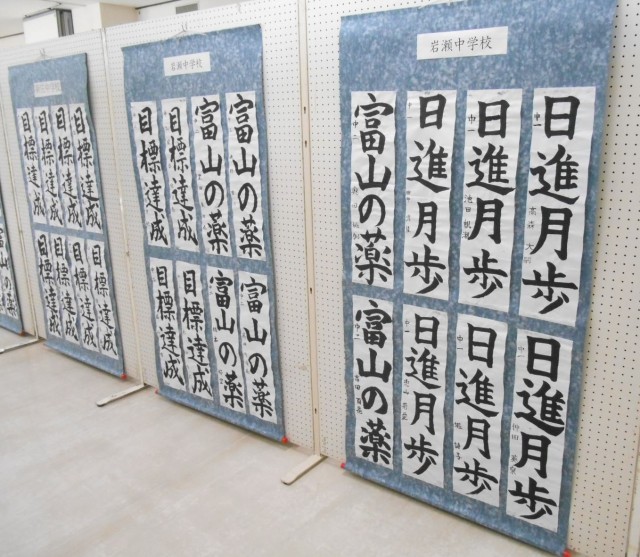 岩瀬中学校
日進月歩
中一
日進月歩
中一
日進月歩
中一
富山の薬
中二
日進月歩
中一
日進月歩
中一
日進月歩
中一
富山の薬
中二
岩瀬中学校
富山の薬
富山の薬
目標達成
目標達成
富山の薬
富山の薬
目標達成
目標達成
目標達成
目標達成
目標達成
目標達成
目標達成
目標達成
目標達成
目標達成
富山の薬